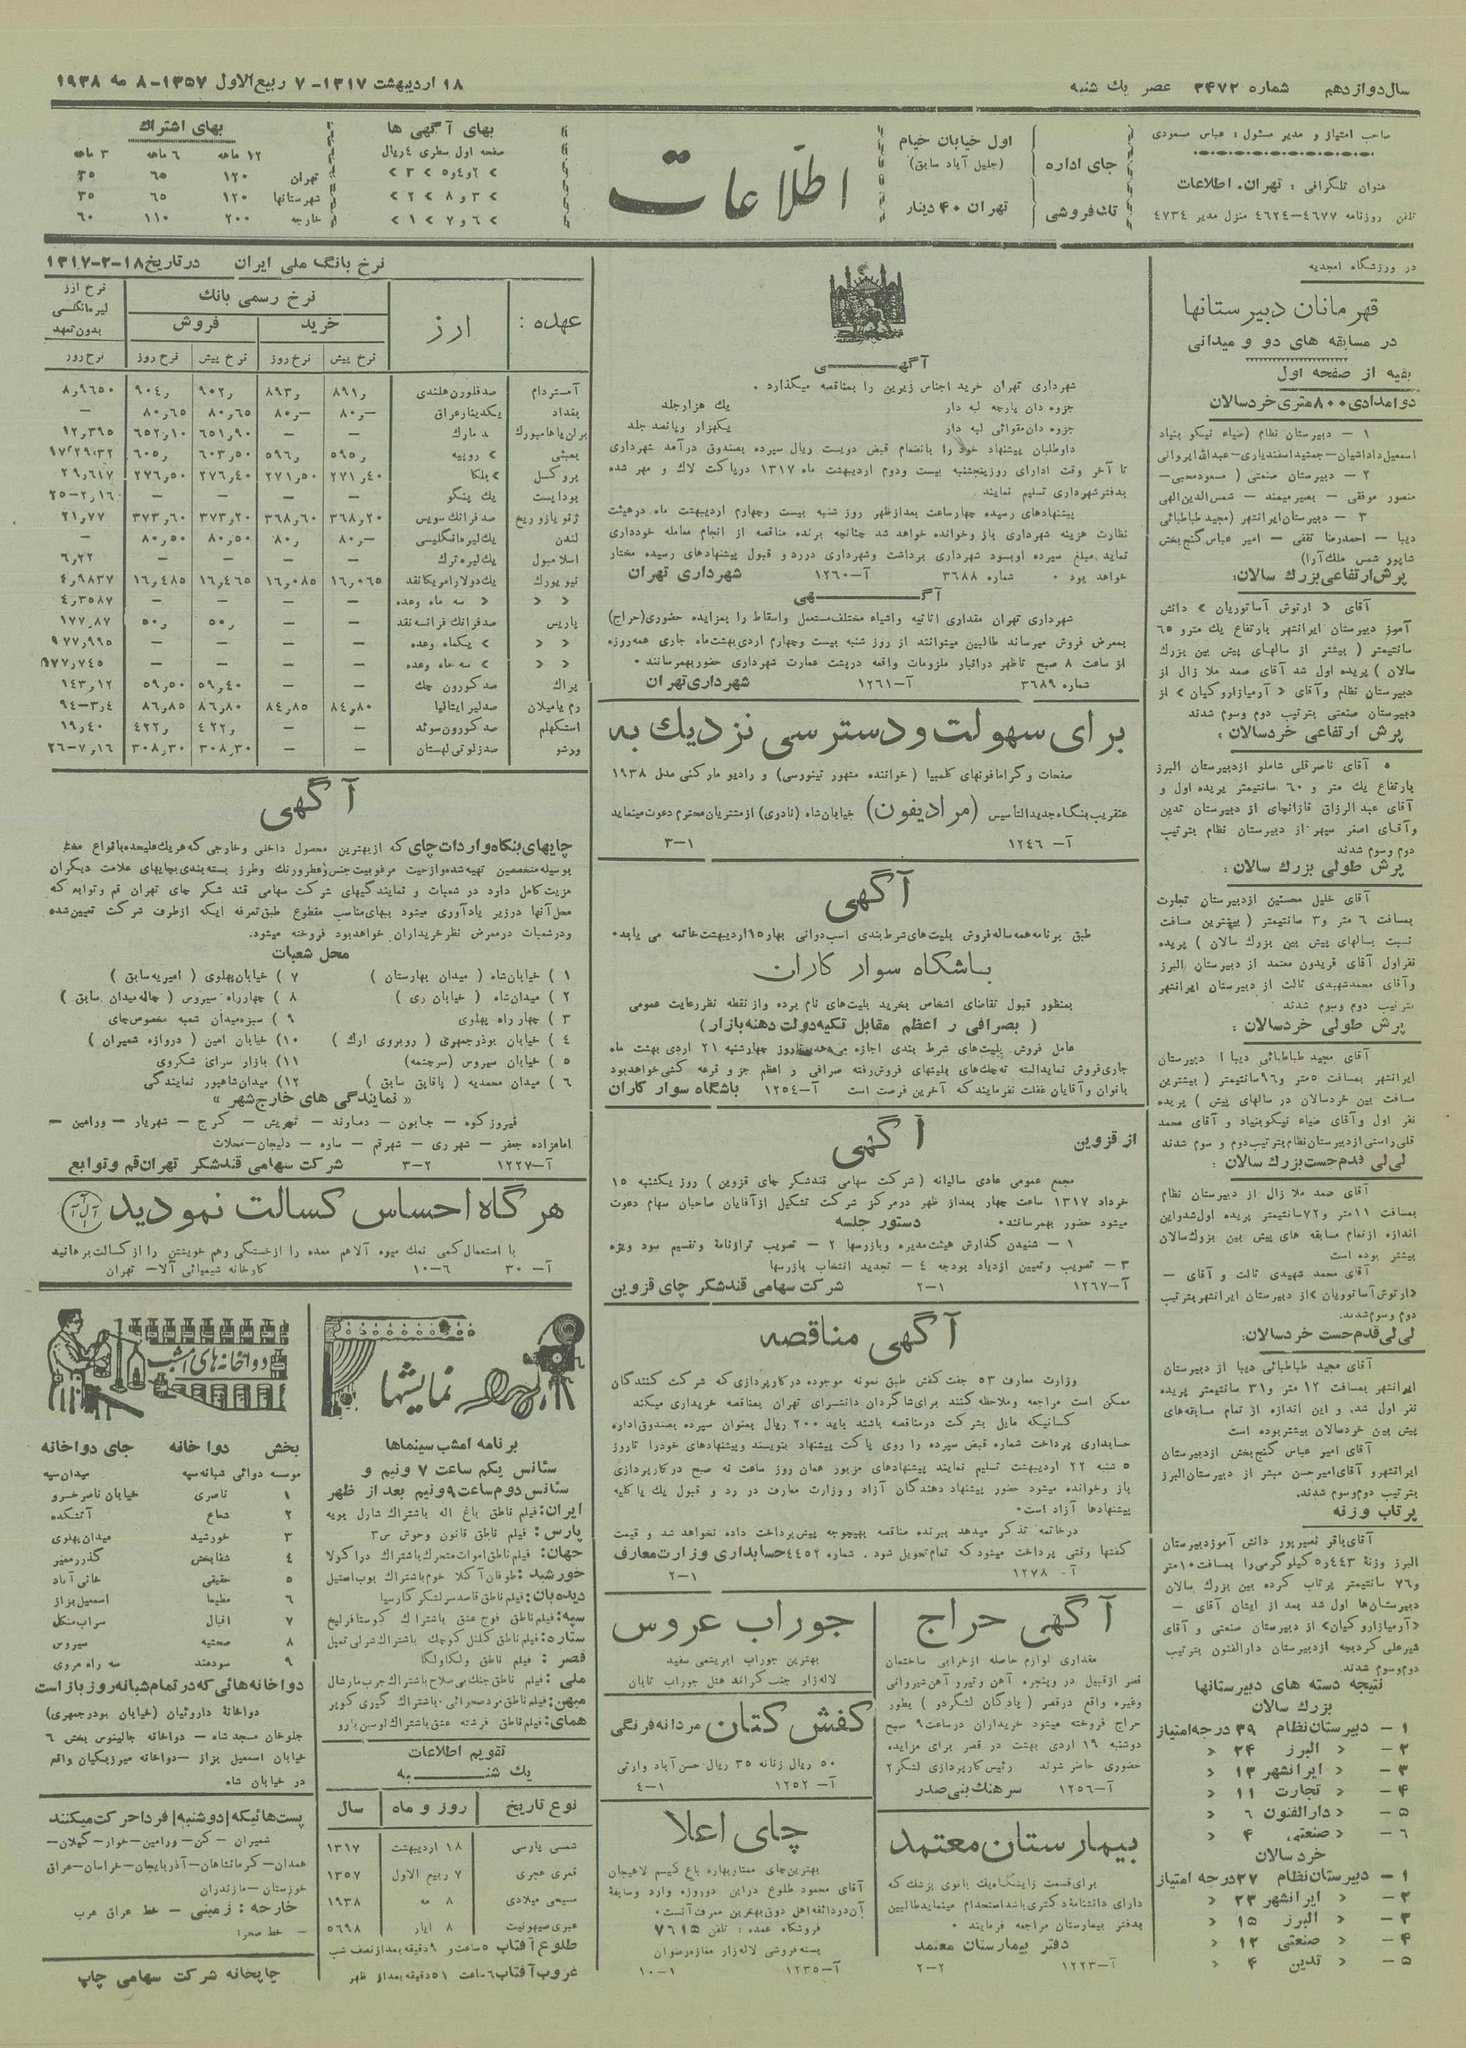 سال دوازدهم شماره ۳۴۷۲ عصر یك شنبه
۱۸ اردیبهشت ۱۳۱۷- ۷ ربیع‌الاول ۱۳۵۷- ۸ مه ۱۹۳۸
صاحب امتیاز و مدیر مسئول : عباس مسعودی
عنوان تلگرافی : تهران. اطلاعات
تلفن روزنامه ۴۶۷۷-۴۶۲۴ منزل مدیر ۴۷۳۴
جای اداره
اول خیابان خیام
(جلیل آباد سابق)
تك‌فروشی
تهران ۴۰ دینار
اطلاعات
بهای آگهی ها
صفحه اول سطری ۴ ریال
بهای اشتراك
۱۲ ماهه ۶ ماهه ۳ ماهه
تهران ۱۲۰ ۶۵ ۳۵
شهرستانها ۱۲۰ ۶۵ ۳۵
خارجه ۲۰۰ ۱۱۰ ۶۰
در ورزشگاه امجدیه
قهرمانان دبیرستانها
در مسابقه های دو و میدانی
بقیه از صفحه اول
دو امدادی ۸۰۰ متری خردسالان
۱ - دبیرستان نظام (ضیاء نیکو بنیاد
اسمعیل داداشیان-جمشید اسفندیاری-عبدالله ایروانی
۲ - دبیرستان صنعتی ( مسعود محبی-
منصور موفقی - بصیر میمند - شمس الدین الهی
۳ - دبیرستان ایرانشهر (مجید طباطبائی
دیبا - احمدرضا ثقفی - امیر عباس گنج‌بخش
شاپور شمس ملك‌آرا)
پرش ارتفاعی بزرك سالان:
آقای « ارتوش آساتوریان » دانش
آموز دبیرستان ایرانشهر بارتفاع یك مترو ۶۵
سانتیمتر ( بیشتر از سالهای پیش بین بزرك
سالان ) پریده اول شد آقای صمد ملا زال از
دبیرستان نظام وآقای « آرمیازاروکیان » از
دبیرستان صنعتی بترتیب دوم وسوم شدند
پرش ارتفاعی خردسالان :
آقای ناصرقلی شاملو ازدبیرستان البرز
بارتفاع یك متر و ۶۰ سانتیمتر پریده اول و
آقای عبدالرزاق قازانچای از دبیرستان تدین
وآقای اصغر سپهر از دبیرستان نظام بترتیب
دوم وسوم شدند
پرش طولی بزرك سالان :
آقای خلیل محسنین ازدبیرستان تجارت
بمسافت ۶ متر و۳ سانتیمتر ( بهترین مسافت
نسبت بسالهای پیش بین بزرك سالان ) پریده
نفراول آقای فریدون معتمد از دبیرستان البرز
وآقای محمدشهیدی ثالث از دبیرستان ایرانشهر
بترتیب دوم وسوم شدند
پرش طولی خردسالان :
آقای مجید طباطبائی دیبا از دبیرستان
ایرانشهر بمسافت ۵متر و۹۶سانتیمتر ( بیشترین
مسافت بین خردسالان در سالهای پیش ) پریده
نفر اول وآقای ضیاء نیکوبنیاد و آقای محمد
قلی راستی ازدبیرستان نظام بترتیب دوم و سوم شدند
لی لی قدم جست بزرك سالان :
آقای صمد ملا زال از دبیرستان نظام
بمسافت ۱۱متر و۷۲سانتیمتر پریده اول شدواین
اندازه ازتمام مسابقه های پیش بین بزرك‌سالان
بیشتر بوده است
آقای محمد شهیدی ثالث و آقای -
«ارتوش آساتوریان »از دبیرستان ایرانشهر بترتیب
دوم وسوم شدند.
لی لی قدم جست خردسالان:
آقای مجید طباطبائی دیبا از دبیرستان
ایرانشهر بمسافت ۱۲ متر و۳۱ سانتیمتر پریده
نفر اول شد. و این اندازه از تمام مسابقه‌های
پیش بین خردسالان بیشتربوده است
آقای امیر عباس گنج‌بخش ازدبیرستان
ایرانشهرو آقای‌امیرحسن مبشر از دبیرستان‌البرز
بترتیب دوم‌وسوم شدند.
پرتاب وزنه
آقای‌باقر نصیرپور دانش آموزدبیرستان
البرز وزنهٔ ۵٫۴۴۳ کیلوگرمی‌را بمسافت۱۰متر
و۷۶ سانتیمتر پرتاب کرده بین بزرك سالان
دبیرستان‌ها اول شد بعد از ایشان آقای -
«آرمیازاروکیان» از دبیرستان صنعتی و آقای
شیرعلی کردبچه ازدبیرستان دارالفنون بترتیب
دوم‌وسوم شدند.
نتیجه دسته های دبیرستانها
بزرك سالان
۱ - دبیرستان نظام ۳۹ درجه امتیاز
۲- « البرز ۲۴ «
۳- « ایرانشهر ۱۳ «
۴- « تجارت ۱۱ «
۵- « دارالفنون ۶ «
۶- « صنعتی ۴ «
خردسالان
۱ - دبیرستان نظام ۲۷درجه امتیاز
۲- « ایرانشهر ۲۳ «
۳- « البرز ۱۵ «
۴- « صنعتی ۱۲ «
۵- « تدین ۴ «
آگهی
شهرداری تهران خرید اجناس زیرین را بمناقصه میگذارد .
جزوه دان پارچه لبه دار یك هزارجلد
جزوه دان‌مقوائی لبه دار یکهزار وپانصد جلد
داوطلبان پیشنهاد خود را بانضمام قبض دویست وریال سپرده بصندوق درآمد شهرداری
تا آخر وقت اداری روزپنجشنبه بیست ودوم اردیبهشت ماه ۱۳۱۷ درپاکت لاك و مهر شده
بدفترشهرداری تسلیم نمایند .
پیشنهادهای رسیده چهارساعت بعدازظهر روز شنبه بیست وچهارم اردیبهشت ماه. درهیئت
نظارت هزینه شهرداری باز وخوانده خواهد شد چنانچه برنده مناقصه از انجام معامله خودداری
نماید. مبلغ سپرده اوبسود شهرداری برداشت وشهرداری دررد و قبول پیشنهادهای رسیده مختار
خواهد بود . شماره ۳۶۸۸ آ-۱۲۶۰ شهرداری تهران
آگهی
شهرداری تهران مقداری اثاثیه واشیاء مختلف‌مستعمل واسقاط را بمزایده حضوری(حراج)
بمعرض فروش میرساند طالبین میتوانند از روز شنبه بیست وچهارم اردی‌بهشت‌ماه جاری همه‌روزه
از ساعت ۸ صبح تاظهر درانبار ملزومات واقعه درپشت عمارت شهرداری حضوربهمرسانند .
شماره ۳۶۸۹ آ-۱۲۶۱ شهرداری‌تهران
برای سهولت و دسترسی نزدیك به
صفحات و گرامافونهای کلمبیا ( خواننده مشهور تینورسی) و رادیو مارکنی مدل ۱۹۳۸
عنقریب‌بنگاه جدیدالتأسیس (مرادیفون) خیابان‌شاه (نادری) ازمشتریان‌محترم دعوت‌مینماید
آ- ۱۲۴۶ ۳-۱
آگهی
طبق برنامه همه ساله فروش بلیت‌های شرط‌بندی اسب‌دوانی بهار ۱۵اردیبهشت‌خاتمه می یابد.
باشگاه سوار کاران
بمنظور قبول تقاضای اشخاص بخرید بلیت‌های نام برده واز نقطه نظررعایت عمومی
( بصرافی ر اعظم مقابل تکیه دولت دهنه بازار )
عامل فروش بلیت‌های شرط بندی اجازه می‌دهدتاروز چهارشنبه ۲۱ اردی بهشت ماه
جاری‌فروش نمایدالبته ته‌چك‌های بلیتهای فروش‌رفته صرافی ر اعظم جزو قرعه کشی‌خواهدبود
بانوان وآقایان غفلت نفرمایندکه آخرین فرصت است آ-۱۲۵۴ باشگاه سوار کاران
از قزوین آگهی
مجمع عمومی عادی سالیانه ( شرکت سهامی قندشکر چای قزوین ) روز یکشنبه ۱۵
خرداد ۱۳۱۷ ساعت چهار بعداز ظهر درمرکز شرکت تشکیل ازآقایان صاحبان سهام دعوت
میشود حضور بهمرسانند. دستور جلسه
۱ - شنیدن گذارش هیئت‌مدیره وبازرسها ۲ - تصویب ترازنامهٔ وتقسیم سود ویژه
۳ - تصویب وتعیین ازدیاد بودجه ۴ - تجدید انتخاب بازرسها
آ-۱۲۶۷ ۲-۱ شرکت سهامی قندشکر چای قزوین
آگهی مناقصه
وزارت معارف ۵۳ جفت‌کفش طبق نمونه موجوده درکارپردازی‌که شرکت کنندگان
ممکن است مراجعه وملاحظه‌کنند برای‌شاگردان دانشسرای تهران بمناقصه خریداری میکند
کسانیکه مایل بشرکت درمناقصه باشند باید ۲۰۰ ریال بعنوان سپرده بصندوق‌اداره
حسابداری پرداخت شماره قبض سپرده را روی پاکت پیشنهاد بنویسند وپیشنهادهای خودرا تاروز
۵ شنبه ۲۲ اردیبهشت تسلیم نمایند پیشنهادهای مزبور همان روز ساعت نه صبح درکارپردازی
باز وخوانده میشود حضور پیشنهاد دهندگان آزاد و وزارت معارف در رد و قبول یك یاکلیه
پیشنهادها آزاد است.
درخاتمه تذکر میدهد ببرنده مناقصه بهیچوجه پیش‌پرداخت داده نخواهد شد و قیمت
کفشها وقتی پرداخت میشودکه تمام‌تحویل شود . شماره ۴۴۵۲ حسابداری وزارت معارف
آ- ۱۲۷۸ ۲-۱
آگهی حراج
مقداری لوازم حاصله ازخرابی ساختمان
قصر ازقبیل در وپنجره آهن وتیرو آهن‌شیروانی
وغیره واقع درقصر ( پادگان لشگردو ) بطور
حراج فروخته میشود خریداران درساعت۹ صبح
دوشنبه ۱۹ اردی بهشت در قصر برای مزایده
حضوری حاضر شوند رئیس‌کارپردازی لشگر۲
آ-۱۲۵۶ سرهنك بنی‌صدر
بیمارستان معتمد
برای‌قسمت زایشگاه‌یك بانوی پزشك که
دارای دانشنامهٔ دکتری‌باشداستخدام مینمایدطالبین
بدفتر بیمارستان مراجعه فرمایند .
دفتر بیمارستان معتمد
آ-۱۲۲۳ ۲-۲
جوراب عروس
بهترین جوراب ابریشمی سفید
لاله‌زار جنب‌گراند هتل جوراب تابان
کفش کتان مردانه‌فرنگی
۵۰ ریال زنانه ۳۵ ریال حسن‌آباد وارثی
آ- ۱۲۵۲ ۴-۱
چای اعلا
بهترین‌چای ممتازبهاره باغ کیسم لاهیجان
آقای محمود طلوع دراین دوروزه وارد
فروشگاه عمده : تلفن ۷۶۱۵
بسته‌فروشی لاله‌زار مغازه‌رضوان
آ-۱۲۳۵ ۱۰-۱
نرخ بانگ ملی ایران در تاریخ ۱۸-۲-۱۳۱۷
عهده : ارز نرخ رسمی بانك
خرید فروش
نرخ پیش نرخ روز نرخ پیش نرخ روز نرخ‌روز
نرخ ارز
لیره‌انگلیسی
بدون‌تعهد
آمستردام صدفلورن‌هلندی ۸۹۱٫ ۸۹۳٫ ۹۰۲٫ ۹۰۴٫ ۸٫۹۶۵۰
بغداد یکدینارعراق ۸۰٫- ۸۰٫- ۸۰٫۶۵ ۸۰٫۶۵ -
برلن‌یاهامبورك صد مارك - - ۶۵۱٫۹۰ ۶۵۲٫۱۰ ۱۲٫۳۹۵
بمبئی » روپیه ۵۹۵٫ ۵۹۶٫ ۶۰۳٫۵۰ ۶۰۵٫
بروکسل » بلگا ۲۷۱٫۴۰ ۲۷۱٫۵۰ ۲۷۶٫۴۰ ۲۷۶٫۵۰ ۲۹٫۶۱۷
بوداپست یك پنگو - - - - ۲۵-۲٫۱۶
ژنو یازوریخ صدفرانك سویس ۳۶۸٫۲۰ ۳۶۸٫۶۰ ۳۷۳٫۲۰ ۳۷۳٫۶۰ ۲۱٫۷۷
لندن یك‌لیره‌انگلیسی ۸۰٫- ۸۰٫ ۸۰٫۵۰ ۸۰٫۵۰ -
اسلامبول یك‌لیره‌ترك - - - - ۶٫۲۲
نیویورك یك‌دولارامریکانقد ۱۶٫۰۶۵ ۱۶٫۰۸۵ ۱۶٫۴۶۵ ۱۶٫۴۸۵ ۴٫۹۸۳۷
« « « سه ماه وعده - - - - ۴٫۳۵۸۷
پاریس صدفرانك فرانسه نقد - - ۵۰٫ ۵۰٫ ۱۷۷٫۸۷
« « » یکماه وعده - - - - ۹۷۷٫۹۲۵
« « » سه ماه وعده - - - - ۱۷۷٫۷۴۵
پراك صدکورون چك - - ۵۹٫۴۰ ۵۹٫۵۰ ۱۴۳٫۱۲
رم یامیلان صدلیر ایتالیا ۸۴٫۸۰ ۸۴٫۸۵ ۸۶٫۸۰ ۸۶٫۸۵ ۹۴-۳٫۴
استکهلم صدکورون سوئد - - ۴۲۲٫ ۴۲۲٫ ۱۹٫۴۰
ورشو صدزلوتی لهستان - - ۳۰۸٫۳۰ ۳۰۸٫۳۰ ۲۶-۷٫۱۶
آگهی
چایهای بنگاه واردات چای که ازبهترین محصول داخلی وخارجی که هریك علیحده بانواع مختلفه
بوسیله متخصصین تهیه شده وازحیث مرغوبیت جنس وعطرورنك وطرز بسته بندی بچایهای علامت دیگران
مزیت کامل دارد در شعبات و نمایندگیهای شرکت سهامی قند شکر چای تهران قم وتوابع که
محل آنها درزیر یادآوری میشود ببهای‌مناسب مقطوع طبق‌تعرفه اینکه ازطرف شرکت تعیین‌شده
ودرشعبات درمعرض نظرخریداران خواهدبود فروخته میشود.
محل شعبات
۱ ) خیابان‌شاه ( میدان بهارستان ) ۷ ) خیابان‌پهلوی ( امیریه سابق )
۲ ) میدان‌شاه ( خیابان ری ) ۸ ) چهارراه سیروس ( چاله‌میدان سابق )
۳ ) چهار راه پهلوی ۹ ) سبزه‌میدان شعبه مخصوص‌چای
۴ ) خیابان بوذرجمهری ( روبروی ارك ) ۱۰ ) خیابان امین ( دروازه شمیران )
۵ ) خیابان سیروس (سرچشمه) ۱۱ ) بازار سرای شکروی
۶ ) میدان محمدیه ( پاقاپق سابق ) ۱۲ ) میدان‌شاهپور نمایندگی
« نمایندگی های خارج شهر »
فیروزکوه - جابون - دماوند - تجریش - کرج - شهریار - ورامین -
امامزاده جعفر - شهرری - شهرقم - ساوه - دلیجان-محلات
آ-۱۲۲۷ ۳-۲ شرکت سهامی قندشکر تهران‌قم وتوابع
هرگاه احساس کسالت نمودید
با استعمال‌کمی نمك میوه آلاهم معده را ازخستگی وهم خویشتن را ازکسالت برهانید
آ- ۳۰ ۱۰-۶ کارخانه شیمیائی آلا- تهران
نمایشها
برنامه امشب سینماها
سئانس یکم ساعت ۷ ونیم و
سئانس دوم ساعت ۹ونیم بعداز ظهر
ایران: فیلم ناطق باغ اله باشتراك شارل بویه
پارس : فیلم ناطق قانون وحوش س۳
جهان: فیلم ناطق‌اموات متحرك باشتراك دراکولا
خورشید :طوفان آکلا خوم باشتراك بوب استیل
دیده‌بان: فیلم ناطق قاصد سرلشگر گارسیا
سپه: فیلم ناطق فوج عشق باشتراك گوستافرلیخ
ستاره: فیلم ناطق کلنل کوچك باشتراك شرلی تمپل
قصر : فیلم ناطق ولگاولگا
ملی : فیلم ناطق جنگ بی‌سلاح باشتراك جرب مارشال
میهن: فیلم ناطق مردصحرائی-باشتراك گیری کوپر
همای: فیلم ناطق فرشته عشق باشتراك لوسین بارو
تقویم اطلاعات
یك شنبه
نوع تاریخ روز و ماه سال
شمسی پارسی ۱۸ اردیبهشت ۱۳۱۷
قمری هجری ۷ ربیع الاول ۱۳۵۷
مسیحی میلادی ۸ مه ۱۹۳۸
عبری صیهونیت ۸ ایار ۵۶۹۸
طلوع آفتاب ۵ساعت و ۹ دقیقه بعدازنصف شب
غروب آفتاب ۶ساعت ۵۱دقیقه بعداز ظهر
دواخانه‌های امشب
بخش دواخانه جای دواخانه
موسسه دوائی شبانه سپه میدان‌سپه
۱ ناصری خیابان ناصرخسرو
۲ شعاع آتشکده
۳ خورشید میدان‌پهلوی
۴ شفابخش گذروزیر
۵ حقیقی خانی آباد
۶ مطیعا اسمعیل‌بزاز
۷ اقبال
۸ صحتیه سیروس
۹ سودمند سه راه مروی
دواخانه هائی که در تمام شبانه روز باز است
دواخانهٔ داروئیان (خیابان بوذرجمهری)
جلوخان مسجد شاه - دواخانه جالینوس بخش ۶
خیابان اسمعیل بزاز -دواخانه میرزیکیان واقع
در خیابان شاه
پست‌هائیکه|دوشنبه|فرداحرکت میکنند
شمیران - کن- ورامین-خوار-گیلان-
همدان-کرمانشاهان-آذربایجان-خراسان-عراق
خوزستان -مازندران
خارجه : زمینی - خط عراق عرب
- خط صحرا
چاپخانه شرکت سهامی چاپ